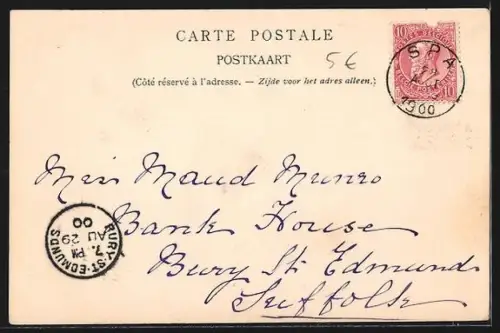 CARTE POSTALE
POSTKAART
5€
(Côté réservé à l'adresse. — Zijde voor het adres alleen.)
10 10
SPA
1900
Miss Maud Munro
Bank House
Bury St Edmunds
Suffolk
BURY·ST·EDMUNDS
7. PM
AU 29
00